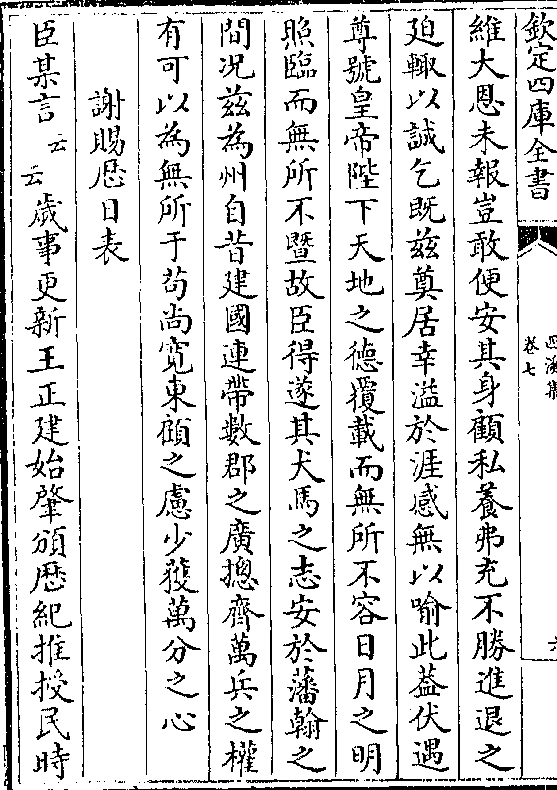 欽定四庫全書
卷七
維大恩未報豈敢便安其身顧私養弗充不勝進退之
廹輙以誠乞既兹奠居幸溢於涯感無以喻此葢伏遇
尊號皇帝陛下天地之德覆載而無所不容日月之明
照臨而無所不暨故臣得遂其犬馬之志安於藩翰之
間况兹為州自昔建國連帶數郡之廣摠齊萬兵之權
有可以為無所于茍尚寛東顧之慮少獲萬分之心
謝賜厯日表
臣某言云云歲事更新王正建始肇頒厯紀推授民時